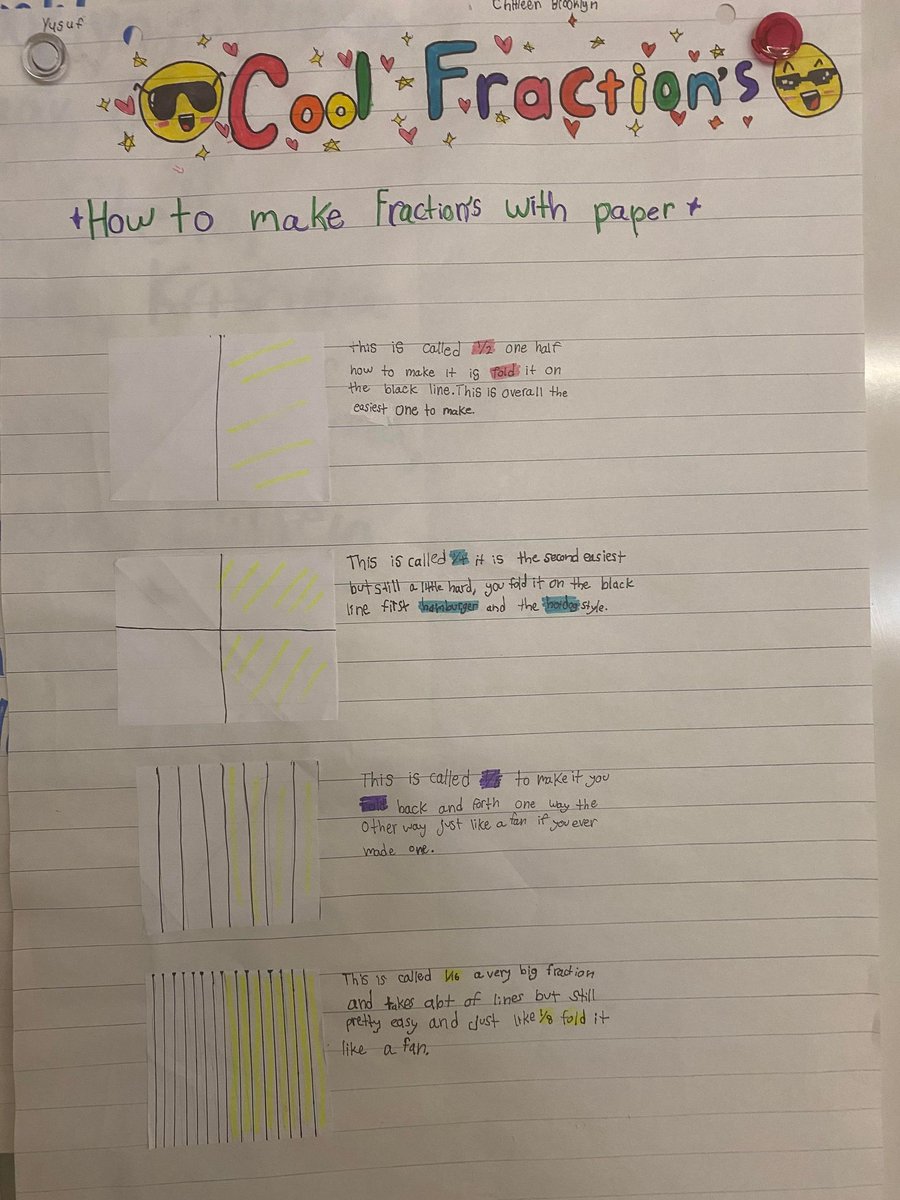 Yusuf
Chitleen Brooklyn
Cool Fraction's
*How to make Fraction's with paper*
this is called 1/2 one half
how to make it is fold it on
the black line. This is overall the
easiest one to make.
This is called 1/4 it is the second easiest
but still a little hard, you fold it on the black
line first hamburger and the hotdog style.
This is called to make it you
fold back and forth one way the
other way just like a fan if you ever
made one.
This is called 1/16 a very big fraction
and takes abt of lines but still
pretty easy and just like 1/8 fold it
like a fan.